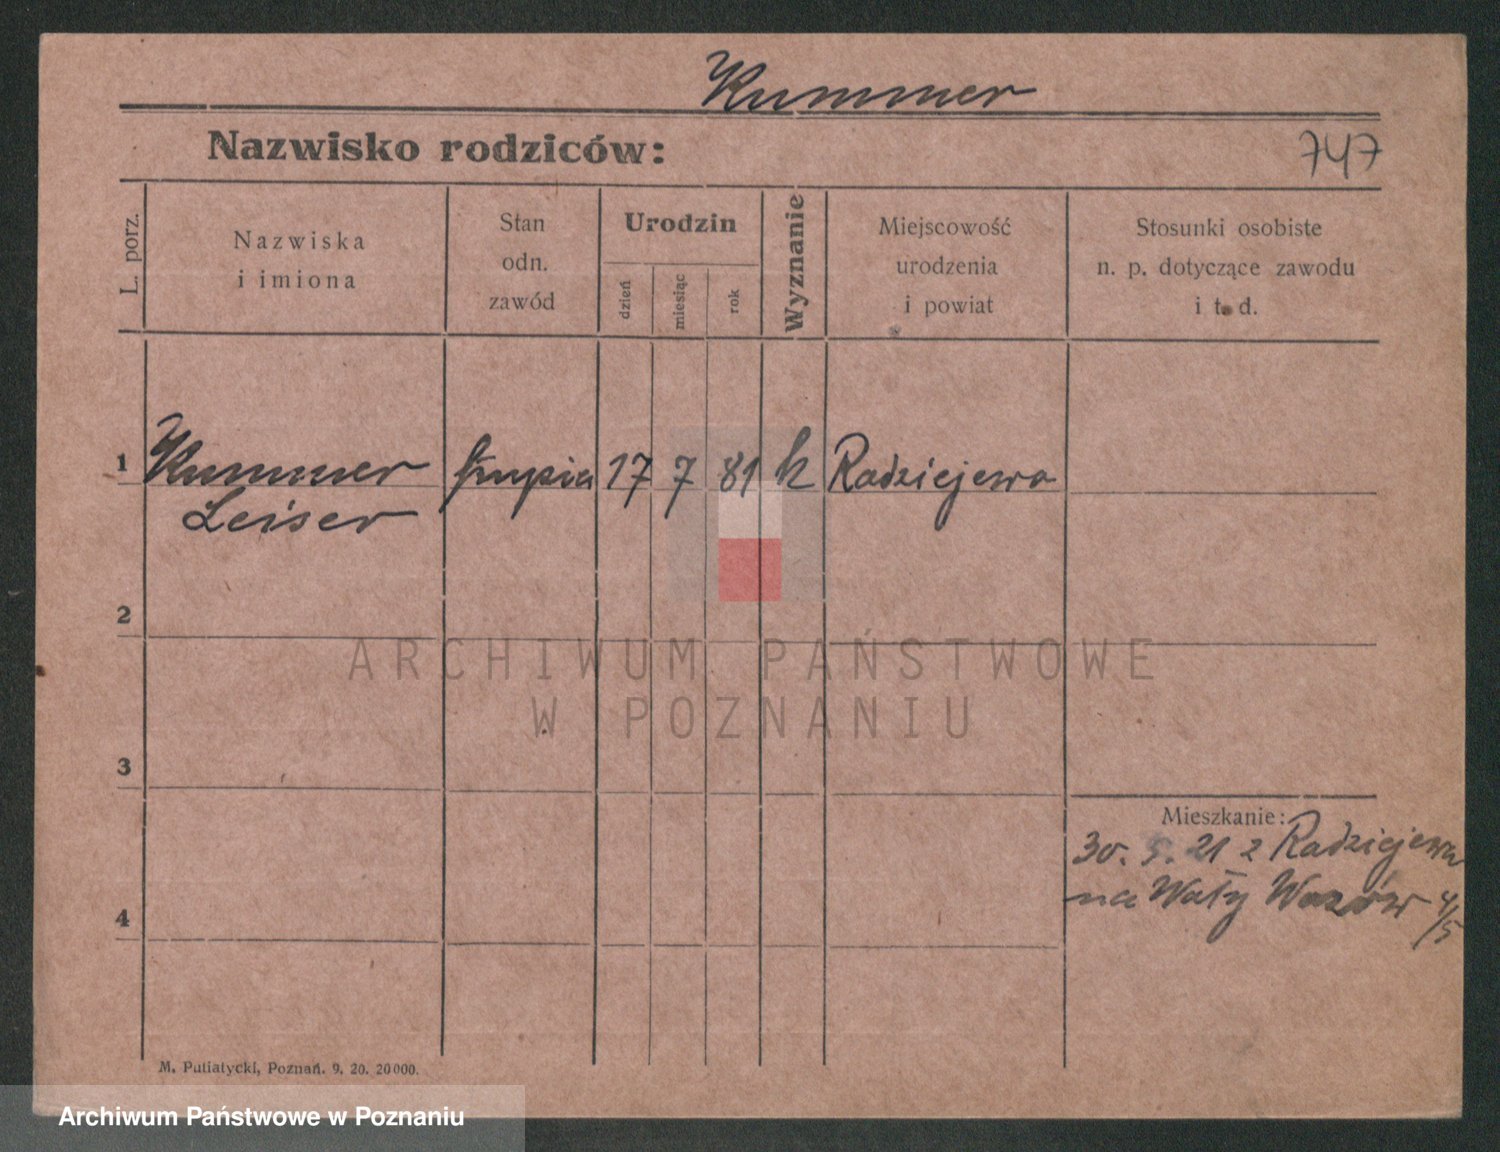 Kummer
Nazwisko rodziców:
747
L. porz.
Nazwiska
i imiona
Stan
odn.
zawód
Urodzin
dzień
miesiąc
rok
Wyznanie
Miejscowość
urodzenia
i powiat
Stosunki osobiste
n. p. dotyczące zawodu
i t. d.
1
Kummer
Leiser
17
7
81
Radziejewo
2
ARCHIWUM PAŃSTWOWE
W POZNANIU
3
Mieszkanie:
30. 5. 21 z Radziejewa
na Wały Wazów 4/5
4
M. Putiatycki, Poznań. 9. 20. 20000.
Archiwum Państwowe w Poznaniu